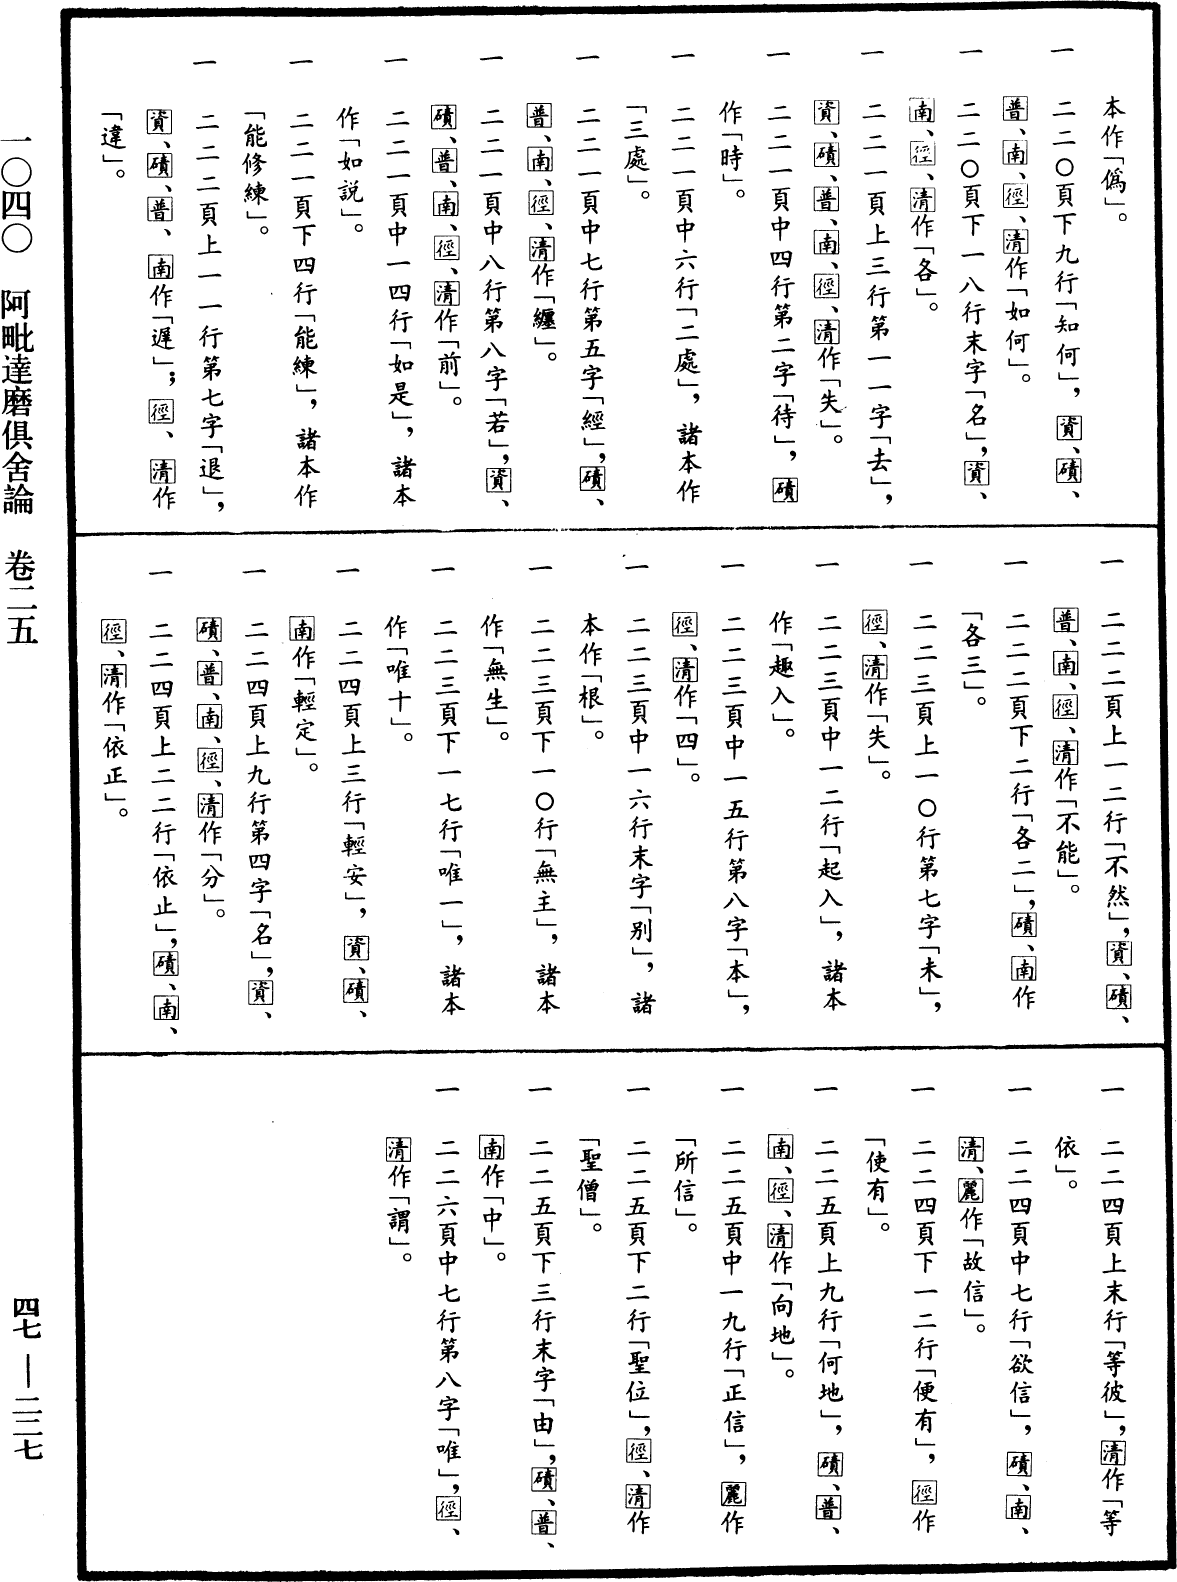 本作「僞」。
一　二二〇頁下九行「知何」，資、磧、
普、南、徑、清作「如何」。
一　二二〇頁下一八行末字「名」，資、
南、徑、清作「各」。
一　二二一頁上三行第一一字「去」，
資、磧、普、南、徑、清作「失」。
一　二二一頁中四行第二字「待」，磧
作「時」。
一　二二一頁中六行「二處」，諸本作
「三處」。
一　二二一頁中七行第五字「經」，磧、
普、南、徑、清作「纏」。
一　二二一頁中八行第八字「若」，資、
磧、普、南、徑、清作「前」。
一　二二一頁中一四行「如是」，諸本
作「如説」。
一　二二一頁下四行「能練」，諸本作
「能修練」。
一　二二二頁上一一行第七字「退」，
資、磧、普、南作「遲」；徑、清作
「違」。
一　二二二頁上一二行「不然」，資、磧、
普、南、徑、清作「不能」。
一　二二二頁下二行「各二」，磧、南作
「各三」。
一　二二三頁上一〇行第七字「未」，
徑、清作「失」。
一　二二三頁中一二行「起入」，諸本
作「趣入」。
一　二二三頁中一五行第八字「本」，
徑、清作「四」。
一　二二三頁中一六行末字「別」，諸
本作「根」。
一　二二三頁下一〇行「無主」，諸本
作「無生」。
一　二二三頁下一七行「唯一」，諸本
作「唯十」。
一　二二四頁上三行「輕安」，資、磧、
南作「輕定」。
一　二二四頁上九行第四字「名」，資、
磧、普、南、徑、清作「分」。
一　二二四頁上二二行「依止」，磧、南、
徑、清作「依正」。
一　二二四頁上末行「等彼」，清作「等
依」。
一　二二四頁中七行「欲信」，磧、南、
清、麗作「故信」。
一　二二四頁下一二行「便有」，徑作
「使有」。
一　二二五頁上九行「何地」，磧、普、
南、徑、清作「向地」。
一　二二五頁中一九行「正信」，麗作
「所信」。
一　二二五頁下二行「聖位」，徑、清作
「聖僧」。
一　二二五頁下三行末字「由」，磧、普、
南作「中」。
一　二二六頁中七行第八字「唯」，徑、
清作「謂」。
一〇四〇　阿毗達磨俱舍論　卷二五
四七——二二七